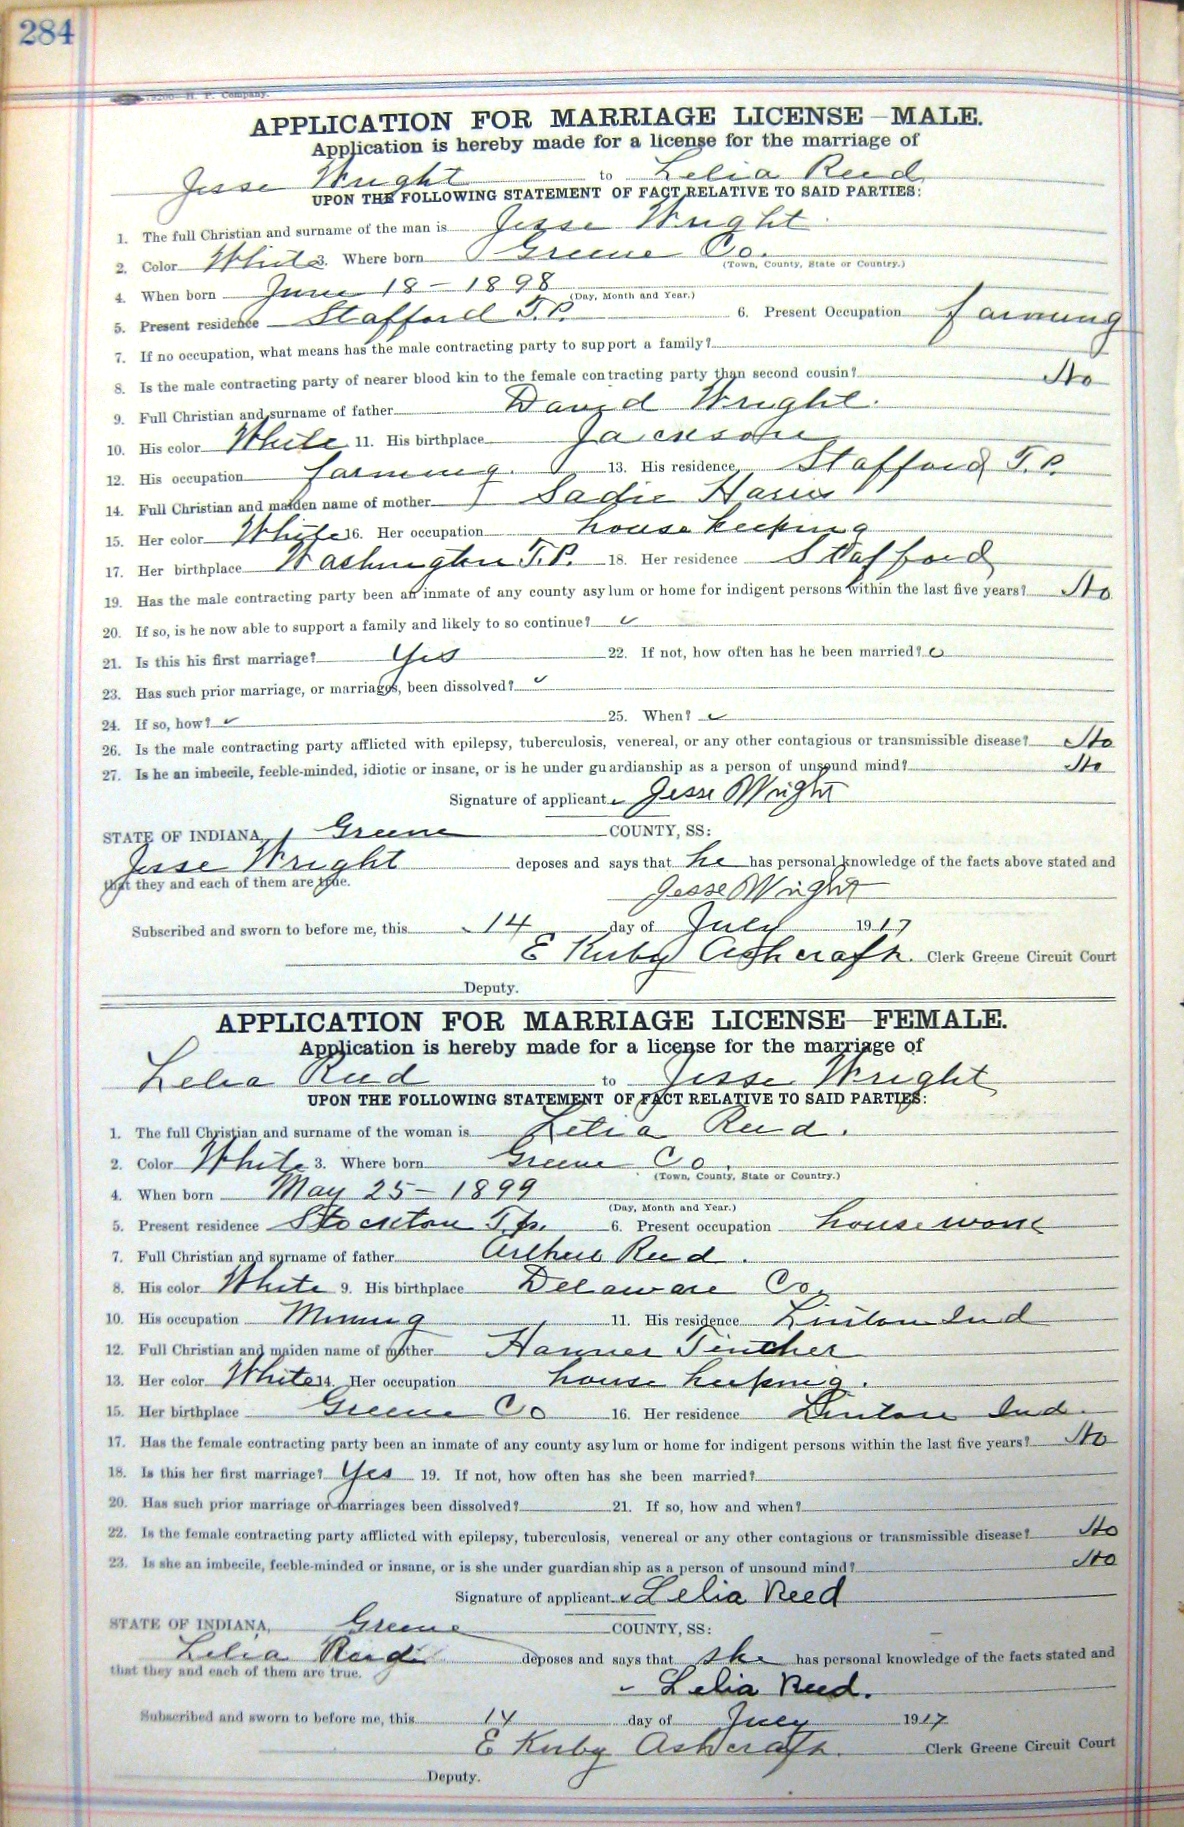 284
19200—H. P. Company.
APPLICATION FOR MARRIAGE LICENSE—MALE.
Application is hereby made for a license for the marriage of
Jesse Wright to Lelia Reed
UPON THE FOLLOWING STATEMENT OF FACT RELATIVE TO SAID PARTIES:
1. The full Christian and surname of the man is Jesse Wright
2. Color White 3. Where born Greene Co.
(Town, County, State or Country.)
4. When born June 18 - 1898
(Day, Month and Year.)
5. Present residence Stafford T.P. 6. Present Occupation farming
7. If no occupation, what means has the male contracting party to support a family?
8. Is the male contracting party of nearer blood kin to the female contracting party than second cousin? No
9. Full Christian and surname of father David Wright.
10. His color White 11. His birthplace Jackson
12. His occupation farming. 13. His residence Stafford T.P.
14. Full Christian and maiden name of mother Sadie Harris
15. Her color White 16. Her occupation house keeping
17. Her birthplace Washington T.P. 18. Her residence Stafford
19. Has the male contracting party been an inmate of any county asylum or home for indigent persons within the last five years? No
20. If so, is he now able to support a family and likely to so continue? ✓
21. Is this his first marriage? Yes 22. If not, how often has he been married? ✓
23. Has such prior marriage, or marriages, been dissolved? ✓
24. If so, how? ✓ 25. When? ✓
26. Is the male contracting party afflicted with epilepsy, tuberculosis, venereal, or any other contagious or transmissible disease? No
27. Is he an imbecile, feeble-minded, idiotic or insane, or is he under guardianship as a person of unsound mind? No
Signature of applicant Jesse Wright
STATE OF INDIANA, Greene COUNTY, SS:
Jesse Wright deposes and says that he has personal knowledge of the facts above stated and
that they and each of them are true.
Jesse Wright
Subscribed and sworn to before me, this 14 day of July 1917
E Kirby Ashcraft. Clerk Greene Circuit Court
Deputy.
APPLICATION FOR MARRIAGE LICENSE—FEMALE.
Application is hereby made for a license for the marriage of
Lelia Reed to Jesse Wright
UPON THE FOLLOWING STATEMENT OF FACT RELATIVE TO SAID PARTIES:
1. The full Christian and surname of the woman is Lelia Reed.
2. Color White 3. Where born Greene Co.
(Town, County, State or Country.)
4. When born May 25 - 1899
(Day, Month and Year.)
5. Present residence Stockton Tp. 6. Present occupation house work
7. Full Christian and surname of father Arthur Reed.
8. His color White 9. His birthplace Delaware Co.
10. His occupation Mining 11. His residence Linton Ind
12. Full Christian and maiden name of mother Hanner Tincher
13. Her color White 14. Her occupation house keeping.
15. Her birthplace Greene Co 16. Her residence Linton Ind.
17. Has the female contracting party been an inmate of any county asylum or home for indigent persons within the last five years? No
18. Is this her first marriage? Yes 19. If not, how often has she been married?
20. Has such prior marriage or marriages been dissolved? 21. If so, how and when?
22. Is the female contracting party afflicted with epilepsy, tuberculosis, venereal or any other contagious or transmissible disease? No
23. Is she an imbecile, feeble-minded or insane, or is she under guardianship as a person of unsound mind? No
Signature of applicant Lelia Reed
STATE OF INDIANA, Greene COUNTY, SS:
Lelia Reed deposes and says that she has personal knowledge of the facts stated and
that they and each of them are true.
Lelia Reed.
Subscribed and sworn to before me, this 14 day of July 1917
E Kirby Ashcraft. Clerk Greene Circuit Court
Deputy.